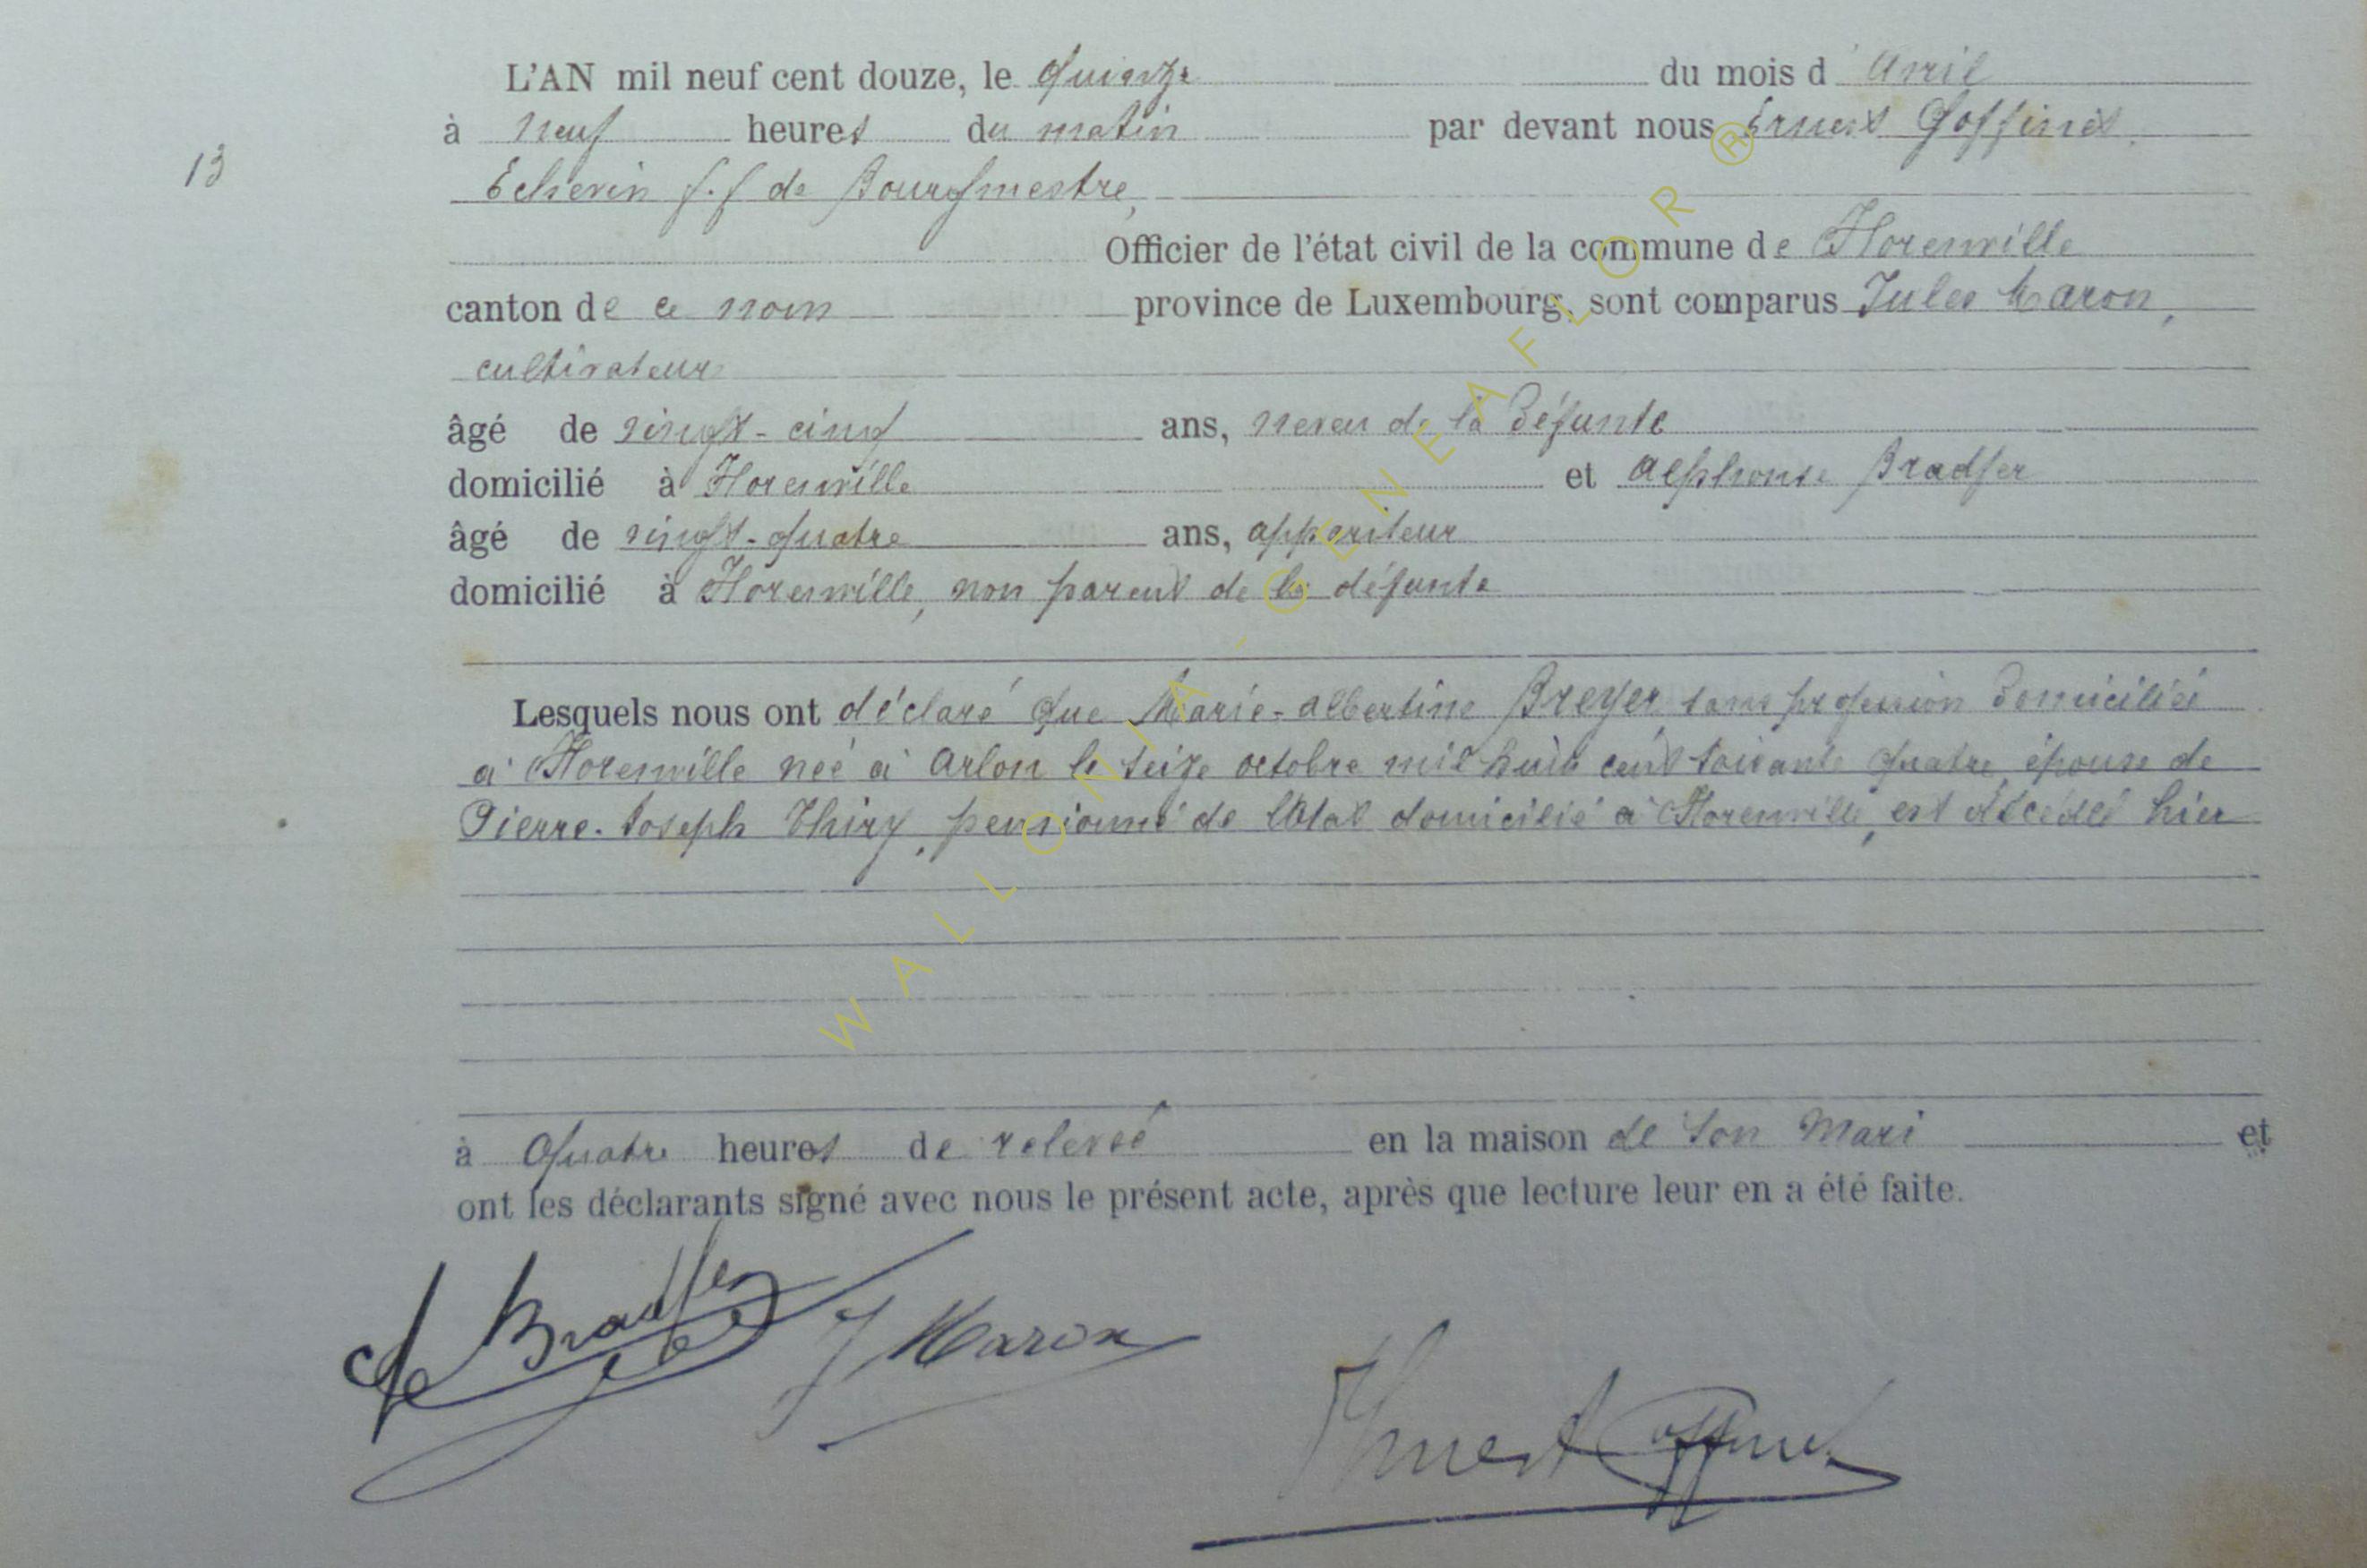 L'AN mil neuf cent douze, le quinze du mois d'avril
à neuf heures du matin par devant nous Ernest Goffinet,
13
Echevin f.f de Bourgmestre,
Officier de l'état civil de la commune de Florenville
canton de ce nom province de Luxembourg, sont comparus Jules Maron,
cultivateur
âgé de vingt-cinq ans, neveu de la défunte
domicilié à Florenville et Alphonse Bradfer
âgé de vingt-quatre ans, appariteur
domicilié à Florenville, non parent de la défunte
Lesquels nous ont déclaré que Marie-Albertine Breyer sans profession domiciliée
à Florenville née à Arlon le seize octobre mil huit cent soixante quatre, épouse de
Pierre-Joseph Thiry, pensionné de l'Etat domicilié à Florenville, est décédée hier
à quatre heures de relevée en la maison de son mari et
ont les déclarants signé avec nous le présent acte, après que lecture leur en a été faite.
Bradfer J Maron
Ernest Goffinet
WALLONIA-GENEAFLOR ®